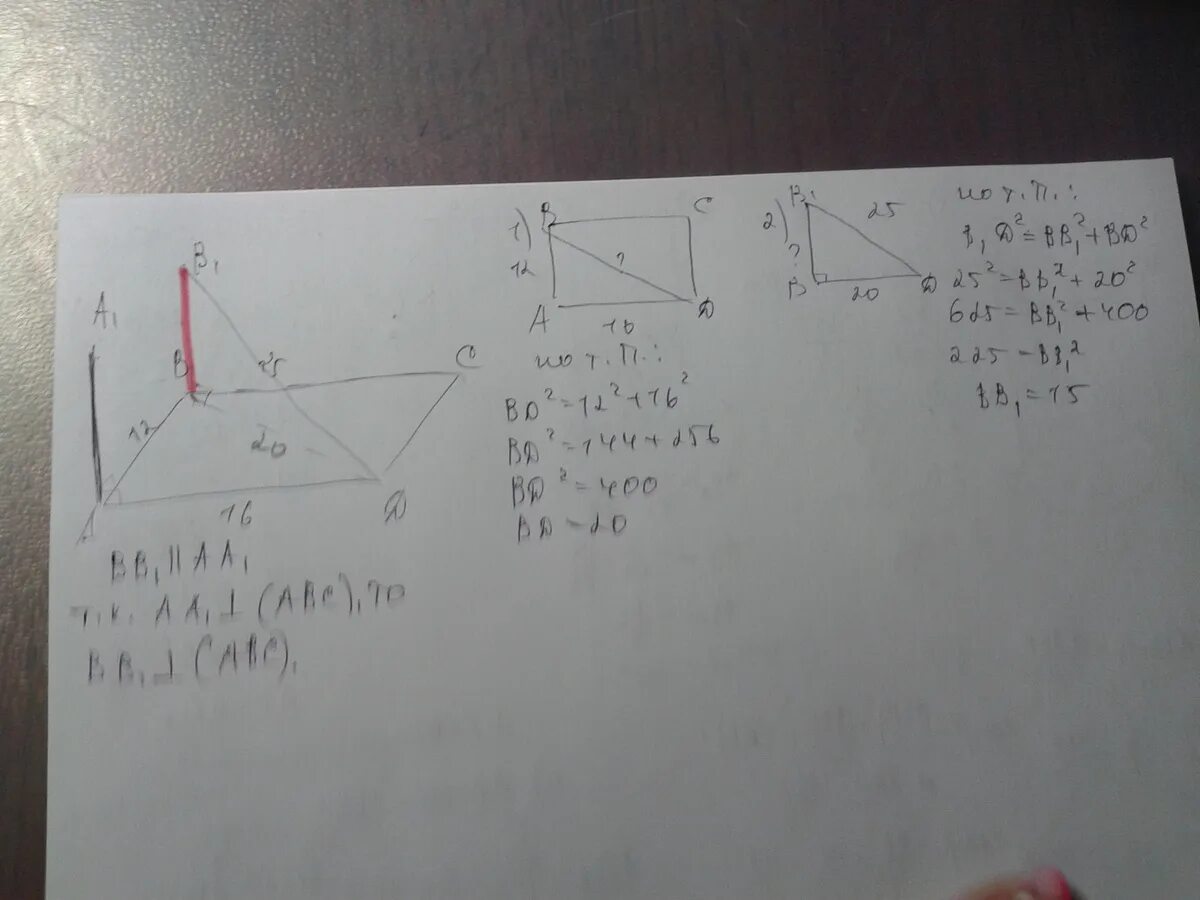 B₁
A₁
B
25
C
12
20
16
D
A
BB₁ || AA₁
т.к. AA₁ ⊥ (ABC), то
BB₁ ⊥ (ABC),
1)
B
C
12
?
A
16
D
по т.П.:
BD² = 12² + 16²
BD² = 144 + 256
BD² = 400
BD = 20
2)
B₁
25
?
B
20
D
по т.П.:
B₁D² = BB₁² + BD²
25² = BB₁² + 20²
625 = BB₁² + 400
225 = BB₁²
BB₁ = 15